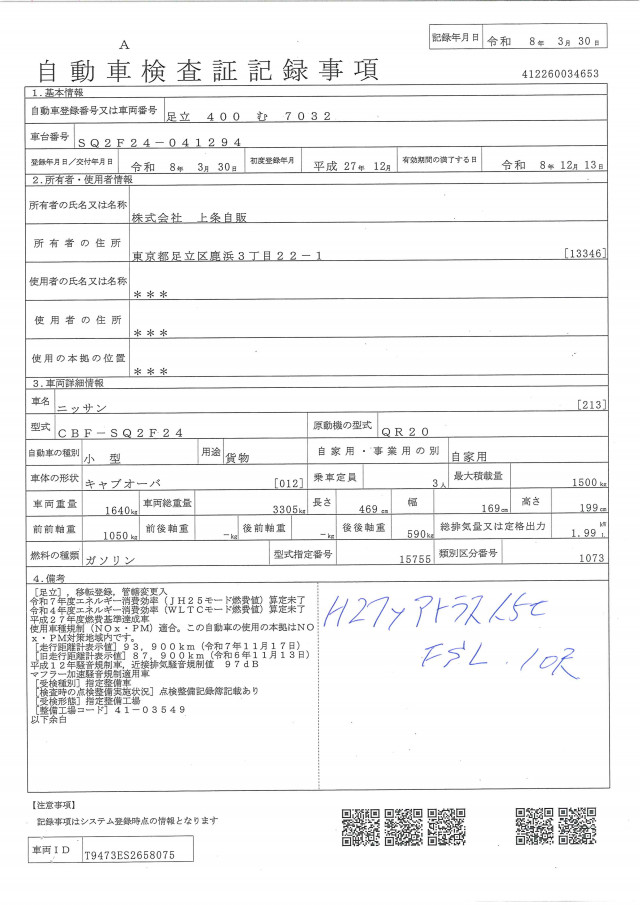 記録年月日 令和 8年 3月 30日
A
自動車検査証記録事項
412260034653
1.基本情報
自動車登録番号又は車両番号 足立 400 む 7032
車台番号 SQ2F24-041294
登録年月日/交付年月日 令和 8年 3月 30日 初度登録年月 平成 27年 12月 有効期間の満了する日 令和 8年 12月 13日
2.所有者・使用者情報
所有者の氏名又は名称 株式会社 上条自販
所有者の住所 東京都足立区鹿浜3丁目22-1 [13346]
使用者の氏名又は名称 ***
使用者の住所 ***
使用の本拠の位置 ***
3.車両詳細情報
車名 ニッサン [213]
型式 CBF-SQ2F24 原動機の型式 QR20
自動車の種別 小型 用途 貨物 自家用・事業用の別 自家用
車体の形状 キャブオーバ [012] 乗車定員 3人 最大積載量 1500kg
車両重量 1640kg 車両総重量 3305kg 長さ 469cm 幅 169cm 高さ 199cm
前前軸重 1050kg 前後軸重 -kg 後前軸重 -kg 後後軸重 590kg 総排気量又は定格出力 1.99 kW L
燃料の種類 ガソリン 型式指定番号 15755 類別区分番号 1073
4.備考
[足立],移転登録,管轄変更入
令和7年度エネルギー消費効率(JH25モード燃費値)算定未了
令和4年度エネルギー消費効率(WLTCモード燃費値)算定未了
平成27年度燃費基準達成車
使用車種規制(NOx・PM)適合。この自動車の使用の本拠はNO
x・PM対策地域内です。
[走行距離計表示値]93,900km(令和7年11月17日)
[旧走行距離計表示値]87,900km(令和6年11月13日)
平成12年騒音規制車,近接排気騒音規制値 97dB
マフラー加速騒音規制適用車
[受検種別]指定整備車
[検査時の点検整備実施状況]点検整備記録簿記載あり
[受検形態]指定整備工場
[整備工場コード]41-03549
以下余白
H27yアトラス1.5t
FSL.10尺
【注意事項】
記録事項はシステム登録時点の情報となります
車両ID T9473ES2658075